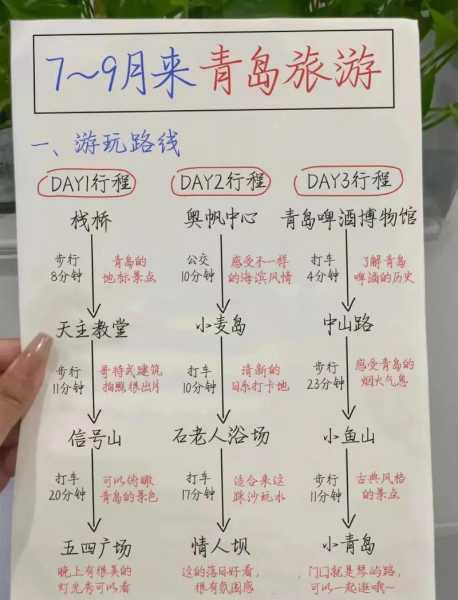 7～9月来青岛旅游
一、游玩路线
DAY1行程
栈桥
步行
8分钟
青岛的
地标景点
天主教堂
步行
11分钟
哥特式建筑
拍照很出片
信号山
打车
20分钟
可以俯瞰
青岛的景色
五四广场
晚上有很美的
灯光秀可以看
DAY2行程
奥帆中心
公交
10分钟
感受不一样
的海滨风情
小麦岛
打车
10分钟
清新的
日系打卡地
石老人浴场
打车
17分钟
适合来这
踩沙玩水
情人坝
这的落日好看，
很有氛围感
DAY3行程
青岛啤酒博物馆
打车
4分钟
了解青岛
啤酒的历史
中山路
步行
23分钟
感受青岛的
烟火气息
小鱼山
步行
11分钟
古典风格
的景点
小青岛
门口就是琴屿路，
可以一起逛哦~